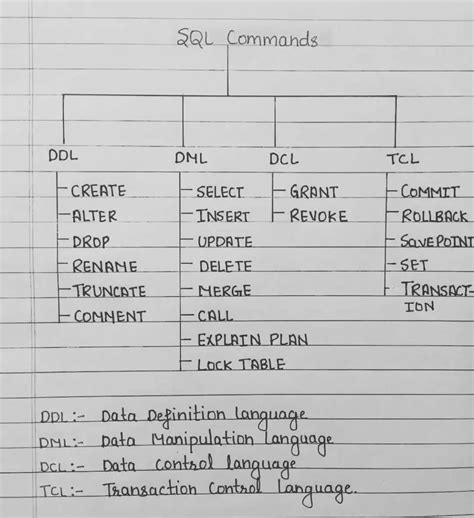 SQL Commands
DDL DML DCL TCL
CREATE SELECT GRANT COMMIT
ALTER INSERT REVOKE ROLLBACK
DROP UPDATE SAVEPOINT
RENAME DELETE SET
TRUNCATE MERGE TRANSACT-
ION
COMMENT CALL
EXPLAIN PLAN
LOCK TABLE
DDL:- Data Definition language
DML:- Data Manipulation Language
DCL:- Data Control language
TCL:- Transaction Control Language.